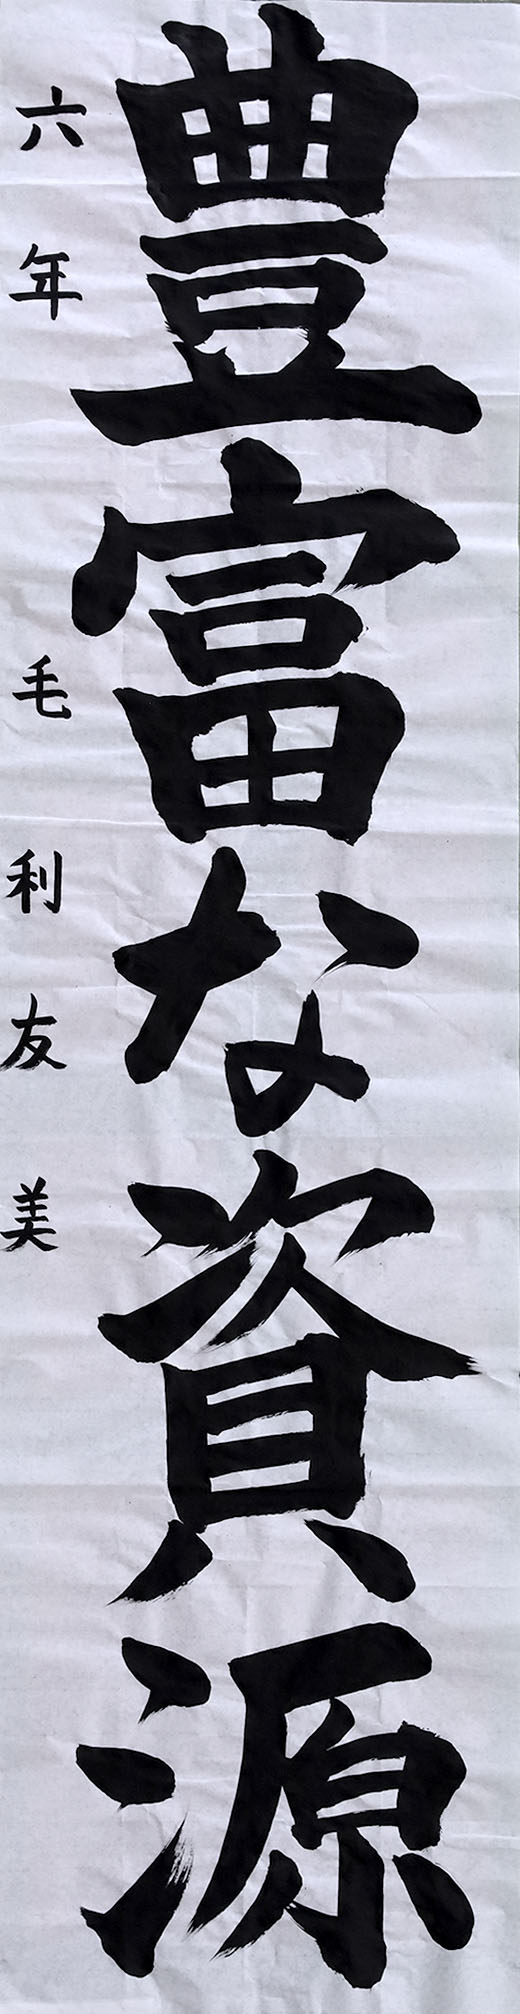 豊富な資源
六年 毛利友美